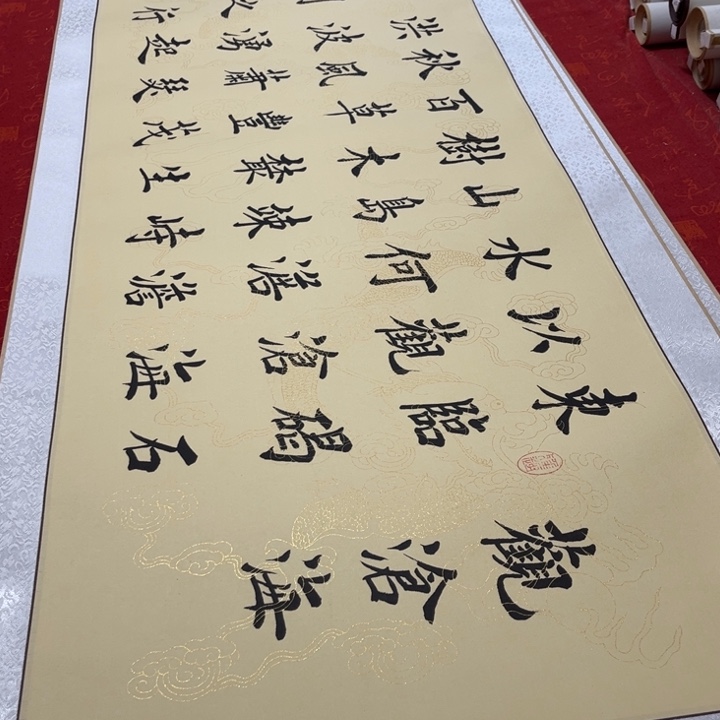 觀滄海
東臨碣石
以觀滄海
水何澹澹
山島竦峙
樹木叢生
百草豐茂
秋風蕭瑟
洪波湧起
行